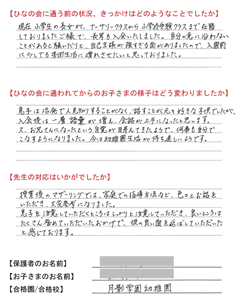 【ひなの会に通う前の状況、きっかけはどのようなことでしたか】
現在 小学生の長女が、ナーサリークラスから小学校受験クラスまで在籍
しておりましたご縁で、長男も入会いたしました。自分の思い通りにならない
ことがあると
に少しでも集団生活に慣れさせたいと思っておりました。
【ひなの会に通われてからのお子さまの様子はどう変わりましたか】
息子は活発で人見知りすることがなく、話すことが元々好きな子供でしたが、
入会後は一層 語彙が増え、会話が上手になったと思います。
又、お兄さんになったという自覚が目覚えてきたようで、何事も自分で
こなすようになりました。今は幼稚園生活が待ち遠しいようです。
【先生の対応はいかがでしたか】
授業後のマザーリングでは、家庭での指導方法など、色々とお話を
いただき、大変参考になりました。
息子を注意していただくところはしっかりと注意していただき、良いところは
たくさん誉めていただいたおかげで、親の良い面を延ばしていただいた
と感じております。
【保護者のお名前】
【お子さまのお名前】
【合格園/合格校】 月影学園幼稚園